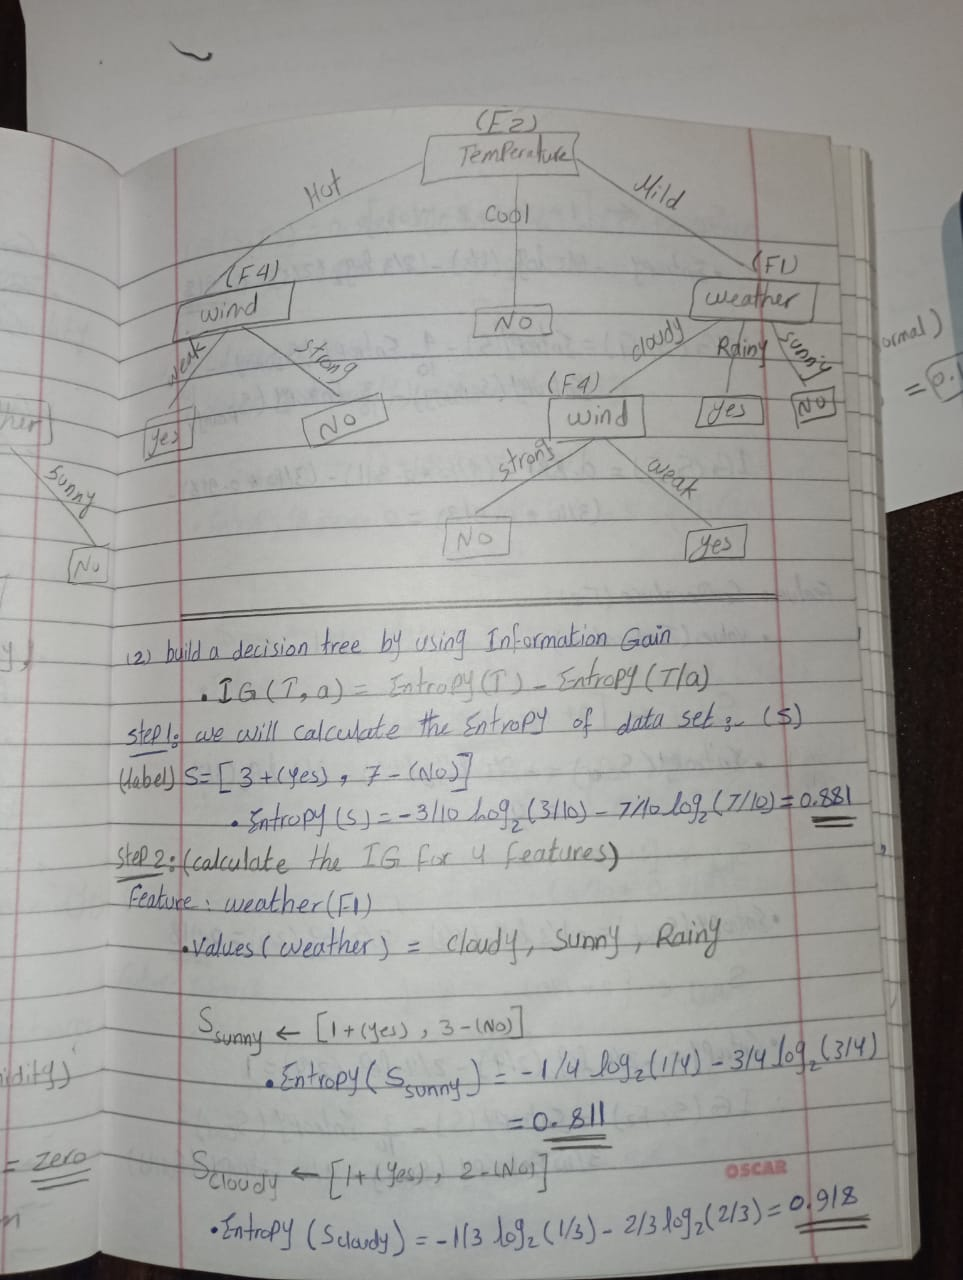 (F2)
Temperature
Hot
Cool
Mild
(F4)
wind
(F1)
weather
No
weak
strong
cloudy
Rainy
sunny
ormal)
= 0.
yes
No
(F4)
wind
yes
No
her
sunny
No
strong
weak
No
yes
(2) build a decision tree by using Information Gain
• IG(T, a) = Entropy(T) - Entropy(T/a)
step 1: we will calculate the Entropy of data set :- (S)
(label) S = [3+(yes), 7-(No)]
• Entropy(S) = -3/10 log2(3/10) - 7/10 log2(7/10) = 0.881
step 2: (calculate the IG for 4 features)
Feature : weather (F1)
• Values (weather) = cloudy, sunny, Rainy
Ssunny ← [1+(yes), 3-(No)]
idity)
• Entropy(Ssunny) = -1/4 log2(1/4) - 3/4 log2(3/4)
= 0.811
= zero
Scloudy ← [1+(yes), 2-(No)]
OSCAR
• Entropy (Scloudy) = -1/3 log2(1/3) - 2/3 log2(2/3) = 0.918